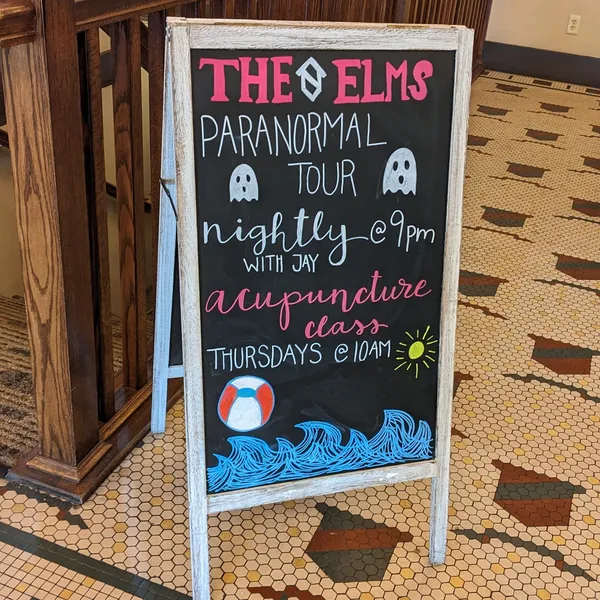 THE ELMS
PARANORMAL
TOUR
nightly @ 9pm
WITH JAY
acupuncture
class
THURSDAYS @ 10AM